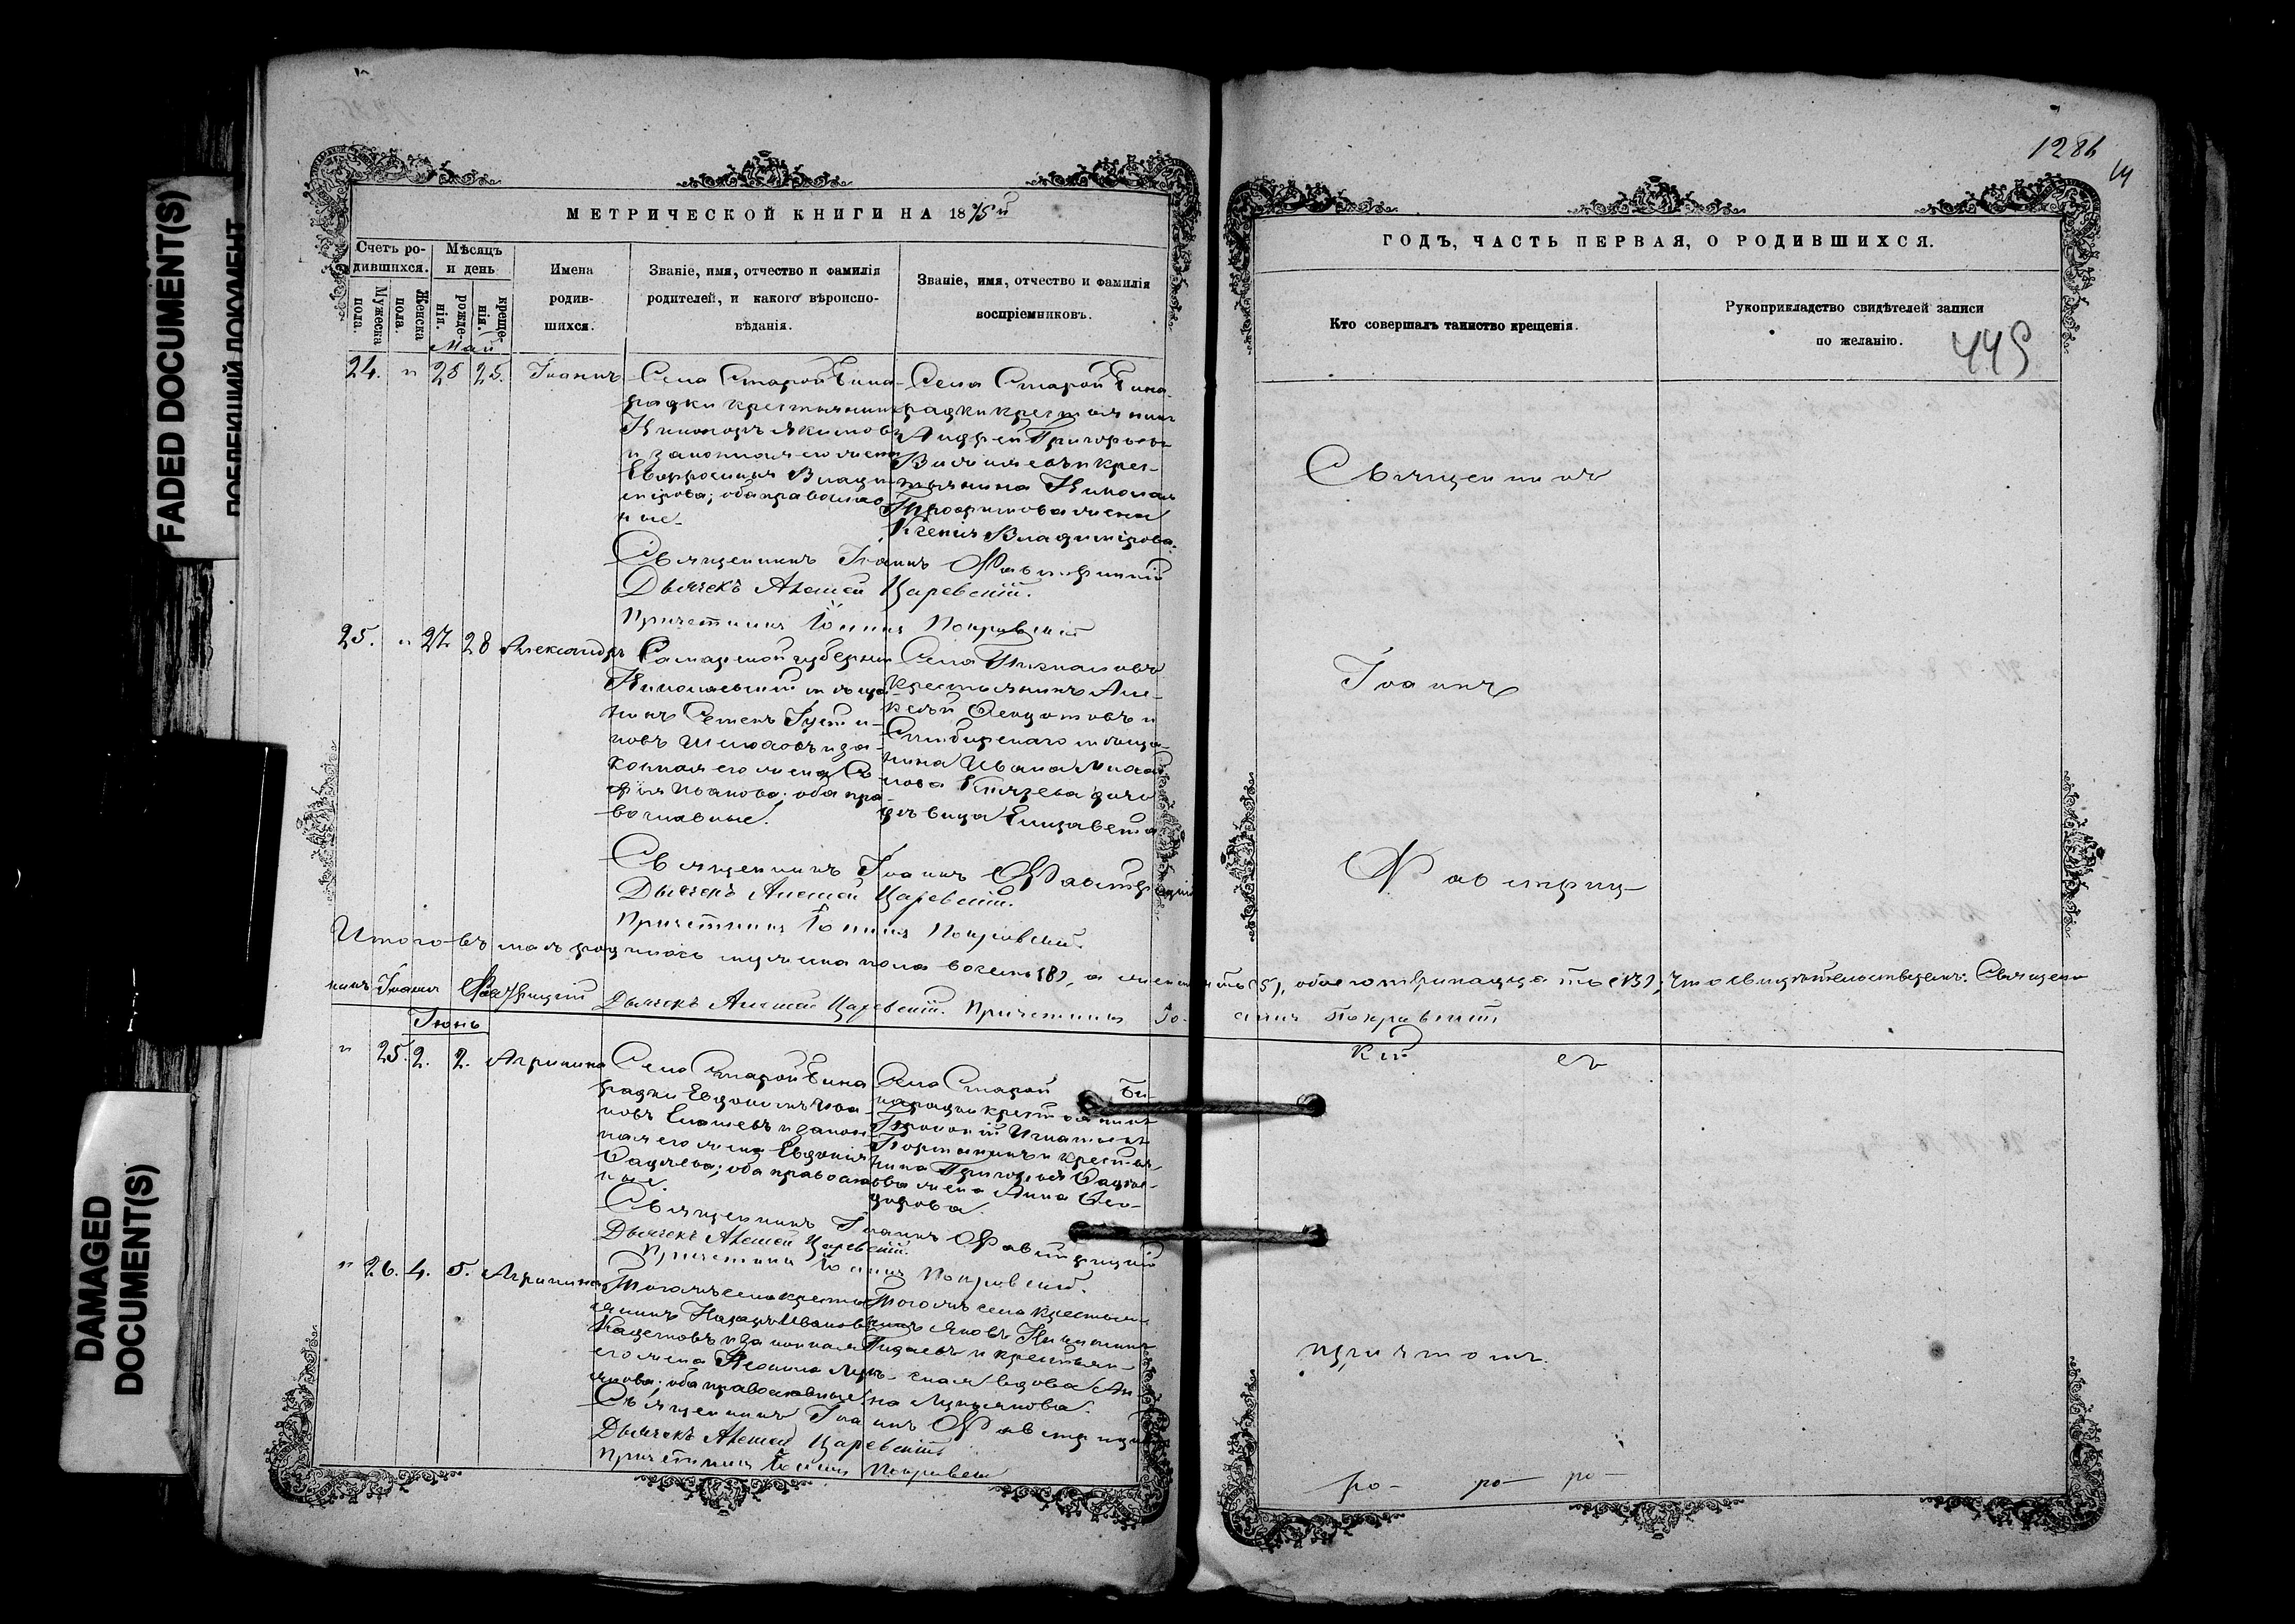 FADED DOCUMENT(S)
DAMAGED
DOCUMENT(S)
МЕТРИЧЕСКОЙ КНИГИ НА 1875й
Счетъ ро-
дившихся.
Мужеска
пола.
Женска
пола.
Мѣсяцъ
и день
рожде-
нія.
креще-
нія.
Май
Имена
родив-
шихся.
Званіе, имя, отчество и фамилія
родителей, и какого вѣроиспо-
вѣданія.
Званіе, имя, отчество и фамилія
воспріемниковъ.
24. " 25 25. Іоаннъ
Села Старой Бина-
радки крестьянинъ
Никаноръ Якимовъ
и законная его жена
Евфросинья Влади-
мірова; оба православ
ные.
Села Старой Бина-
радки крестьянинъ
Андрей Григорьевъ
и крес-
тьянина Николая
Трофимова жена
Ксенія Владимірова.
Священникъ Іоаннъ
Дьячекъ Алексей Царевскій.
Причетникъ Іоаннъ Покровскій
25. " 27. 28 Александръ
Самарской губерніи
Николаевскій мѣща-
нинъ Семенъ
и за-
конная его жена Со-
фія Иванова; оба пра
вославные.
Села
крестьянинъ Але-
ксѣй Федотовъ и
Симбирскаго мѣща-
нина Ивана
Князева дочь
дѣвица Елизавета
Священникъ Іоаннъ
Дьячекъ Алексей Царевскій.
Причетникъ Іоаннъ Покровскій.
Итого въ маѣ родилось мужеска пола восемь (8), а женска пять (5), обоего тринадцать (13); что свидѣтельствуемъ: Священ
никъ Іоаннъ Дьячекъ Алексей Царевскій. Причетникъ Іо- аннъ Покровскій
Іюнь
" 25. 2. 2. Агрипина
Села Старой Бина
радки Евдокимъ Ива-
новъ и закон
ная его жена Евдокія
оба православ
ные
Села Старой Би-
нарадки крестьянинъ
Прокопій Игнатьевъ
и крестья-
нина Григорія
жена Анна Фео-
дорова.
Священникъ Іоаннъ
Дьячекъ Алексей Царевскій.
Причетникъ Іоаннъ Покровскій.
" 26. 4. 5. Агрипина
Тогожъ села кресть
янинъ Назаръ Ивановъ
и законная
его жена
оба православные
Тогожъ села крестьян
инъ Яковъ
и крестьян-
ская вдова Ан-
на Лукьянова.
Священникъ Іоаннъ
Дьячекъ Алексей Царевскій
Причетникъ Іоаннъ Покровск
1286
14
ГОДЪ, ЧАСТЬ ПЕРВАЯ, О РОДИВШИХСЯ.
Кто совершалъ таинство крещенія.
Рукоприкладство свидѣтелей записи
по желанію.
449
Священникъ
Іоаннъ
кій съ
причтомъ.
ро- ро- ро-